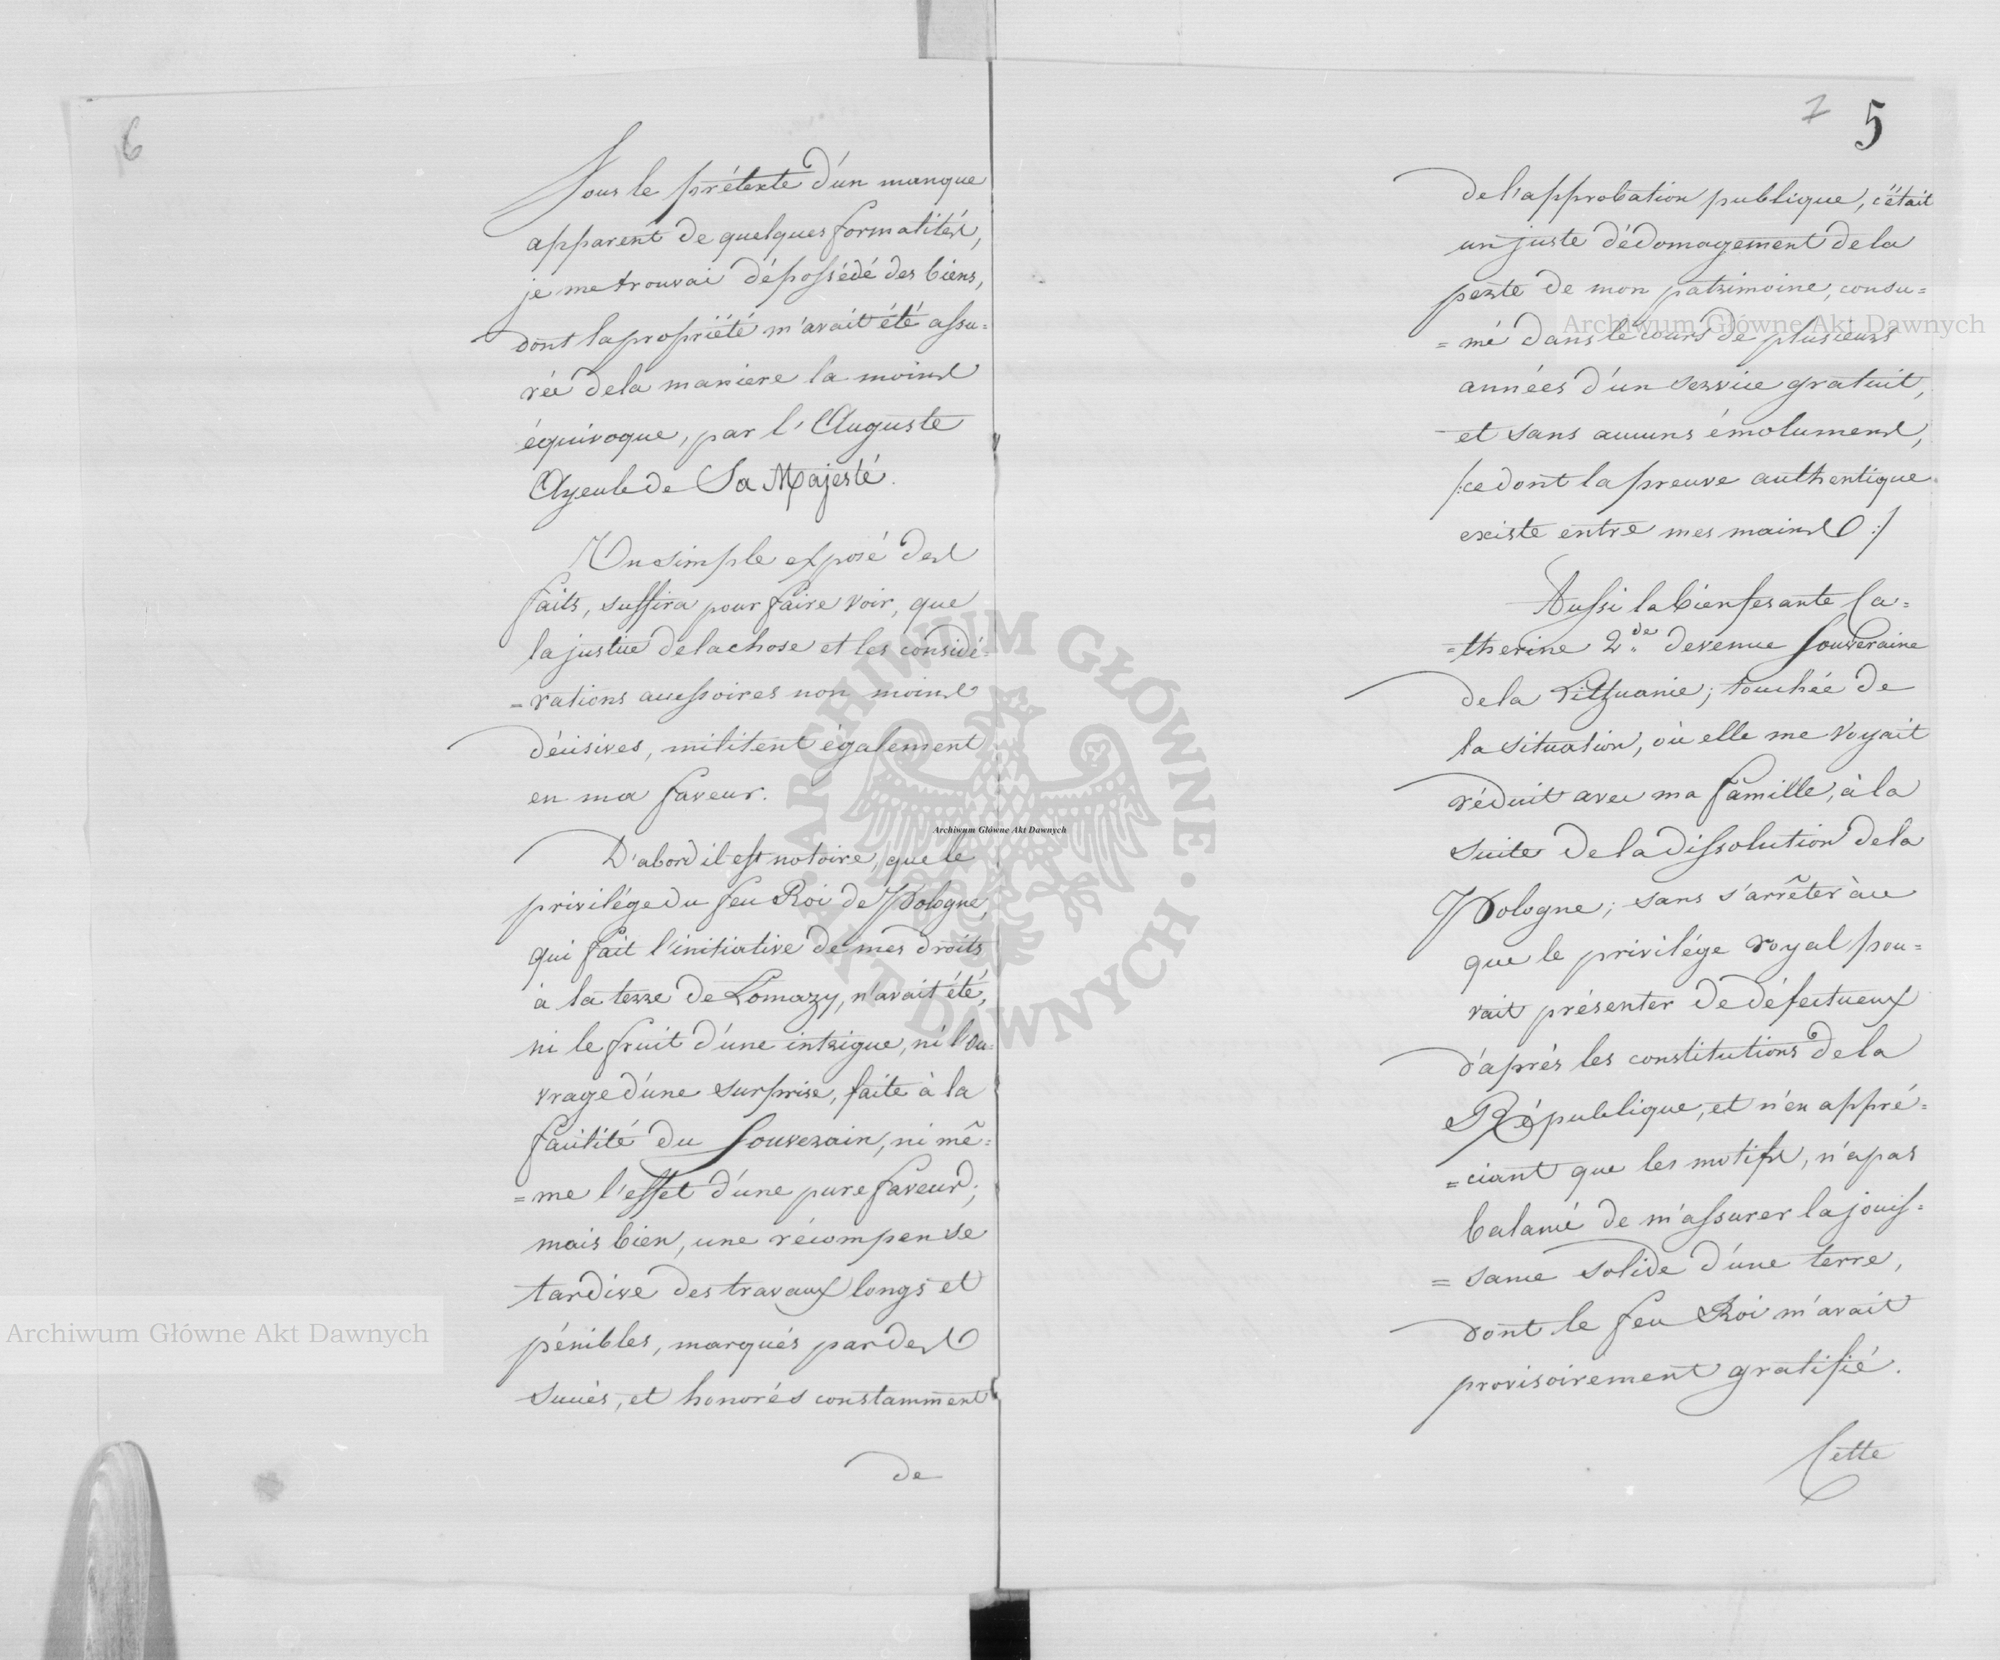 6
Sous le prétexte d'un manque
apparent de quelques formalités,
je me trouvai dépossédé des biens,
dont la propriété m'avait été assu=
rée de la maniere la moins
équivoque, par l'Auguste
Ayeule de Sa Majesté.
Un simple exposé des
faits, suffira pour faire voir, que
la justice de la chose et les considé=
=rations accessoires non moins
décisives, militent également
en ma faveur.
D'abord il est notoire, que le
privilége du feu Roi de Pologne,
qui fait l'initiative de mes droits
à la terre de Lomazy, n'avait été,
ni le fruit d'une intrigue, ni l'ou=
vrage d'une surprise, faite à la
facilité du Souverain, ni mê=
=me l'effet d'une pure faveur;
mais bien, une récompense
tardive des travaux longs et
pénibles, marqués par des
succès, et honorés constamment
de
7 5
de l'approbation publique, c'était
un juste dédomagement de la
perte de mon patrimoine, consu=
=mé dans le cours de plusieurs
années d'un service gratuit,
et sans aucuns émolumens,
/:ce dont la preuve authentique
existe entre mes mains:/
Aussi la bienfesante Ca=
=therine 2.de devenue Souveraine
de la Lithuanie; touchée de
la situation, où elle me voyait
réduit avec ma famille, à la
suite de la dissolution de la
Pologne; sans s'arrêter à ce
que le privilége royal pou=
vait présenter de défectueux
d'aprés les constitutions de la
République, et n'en appré=
=ciant que les motifs, n'a pas
balancé de m'assurer la jouis=
=sance solide d'une terre,
dont le feu Roi m'avait
provisoirement gratifié.
Cette
Archiwum Główne Akt Dawnych
Archiwum Główne Akt Dawnych
Archiwum Główne Akt Dawnych
ARCHIWUM GŁÓWNE · AKT DAWNYCH ·